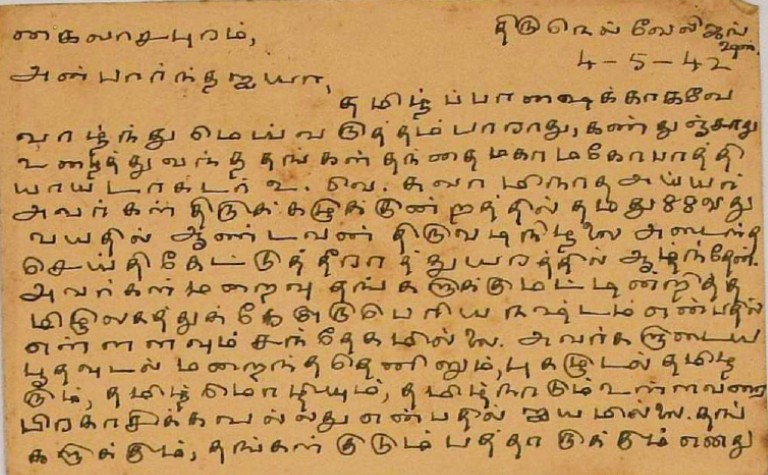 கைலாசபுரம்,
திருநெல்வேலிஜங்ஷன்.
4-5-42
அன்பார்ந்தஐயா,
தமிழ்ப்பாஷைக்காகவே
வாழ்ந்து மெய்வருத்தம்பாராது, கண்துஞ்சாது
உழைத்துவந்த தங்கள் தந்தை மகாமகோபாத்தி
யாய டாக்டர் உ. வே. சுவாமிநாத அய்யர்
அவர்கள் திருக்கழுக்குன்றத்தில் தமது 88வது
வயதில் ஆண்டவன் திருவடிநிழலை அடைந்த
செய்தி கேட்டுத்தீராத்துயரத்தில் ஆழ்ந்தேன்.
அவர்கள் மறைவு தங்களுக்குமட்டின்றித்த
மிழுலகத்துக்கே ஒருபெரிய நஷ்டம் என்பதில்
எள்ளளவும் சந்தேகமில்லை. அவர்களுடைய
பூதவுடல் மறைந்ததெனினும், புகழுடல் தமிழ
ரும், தமிழ்மொழியும், தமிழ்நாடும் உள்ளவரை
பிரகாசிக்கவல்லது என்பதில் ஐயமில்லை. தங்
களுக்கும், தங்கள் குடும்பத்தாருக்கும் எனது